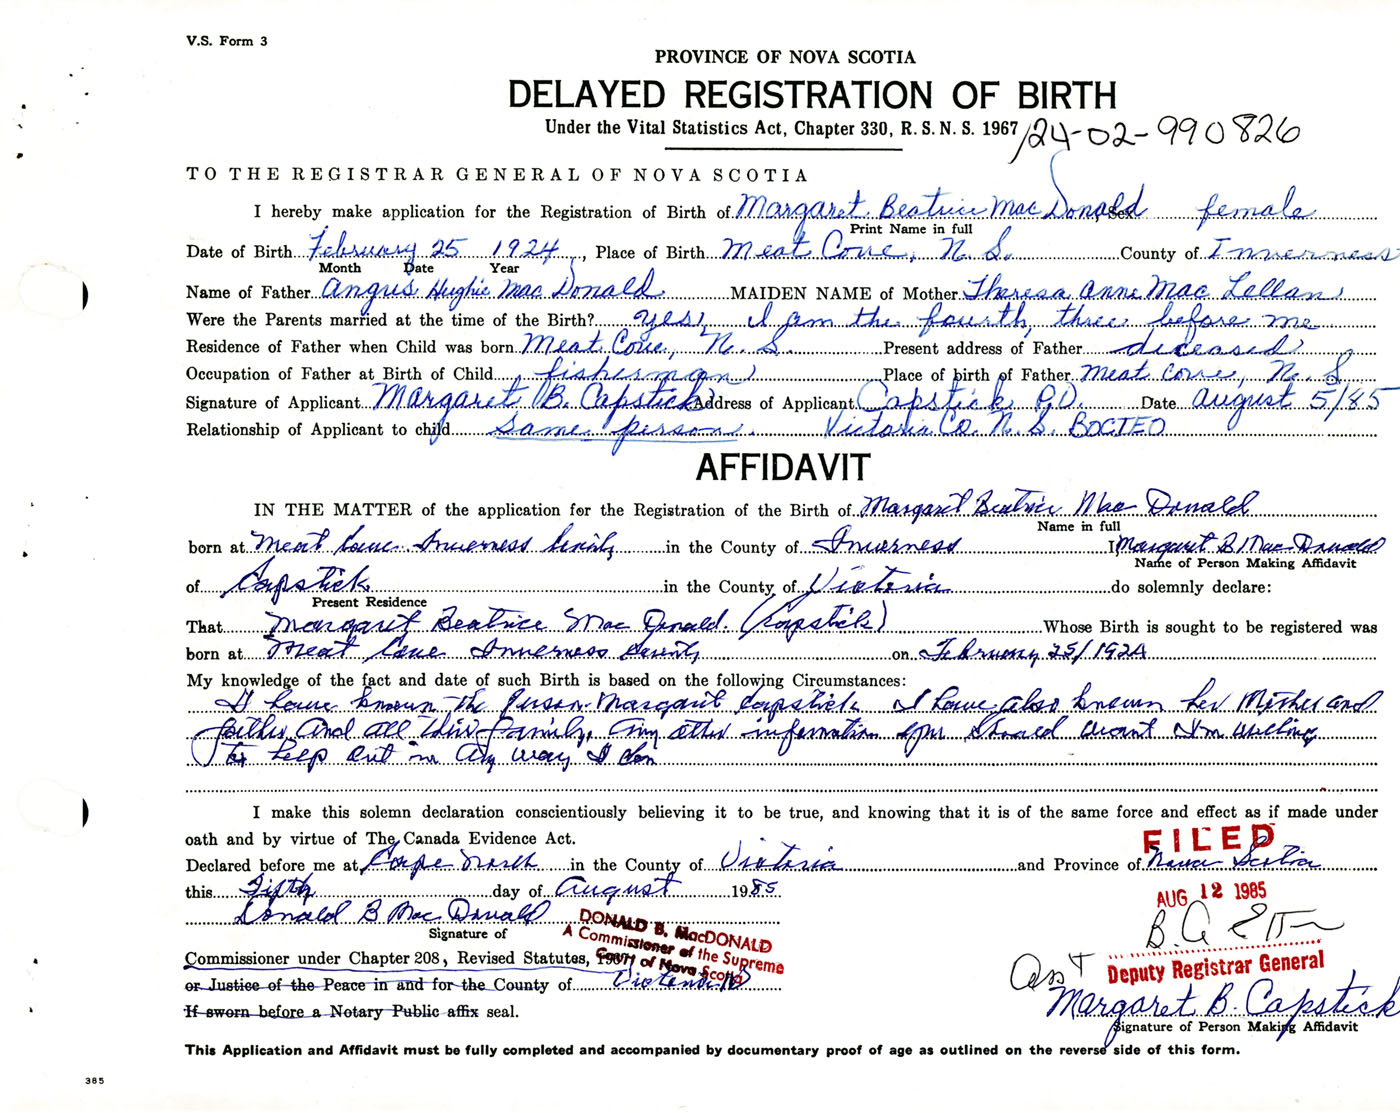 V.S. Form 3
PROVINCE OF NOVA SCOTIA
DELAYED REGISTRATION OF BIRTH
Under the Vital Statistics Act, Chapter 330, R. S. N. S. 1967 124-02-990826
TO THE REGISTRAR GENERAL OF NOVA SCOTIA
I hereby make application for the Registration of Birth of Margaret Beatrice MacDonald Sex female
Print Name in full
Date of Birth February 25 1924, Place of Birth Meat Cove, N. S. County of Inverness
Month Date Year
Name of Father Angus Hughie MacDonald MAIDEN NAME of Mother Theresa Anne MacLellan
Were the Parents married at the time of the Birth? yes, I am the fourth, three before me
Residence of Father when Child was born Meat Cove, N. S. Present address of Father deceased
Occupation of Father at Birth of Child fisherman Place of birth of Father Meat Cove, N. S.
Signature of Applicant Margaret B. Capstick Address of Applicant Capstick P.O. Date August 5/85
Relationship of Applicant to child same person. Victoria Co. N. S. B0C1E0
AFFIDAVIT
IN THE MATTER of the application for the Registration of the Birth of Margaret Beatrice MacDonald
Name in full
born at Meat Cove Inverness County in the County of Inverness I Margaret B MacDonald
Name of Person Making Affidavit
of Capstick in the County of Victoria do solemnly declare:
Present Residence
That Margaret Beatrice MacDonald. (Capstick) Whose Birth is sought to be registered was
born at Meat Cove Inverness County on February 25/1924
My knowledge of the fact and date of such Birth is based on the following Circumstances:
I have known the Person Margaret Capstick I have also known her Mother and
father and all their family, any other information you should want I'm willing
to help out in any way I can
I make this solemn declaration conscientiously believing it to be true, and knowing that it is of the same force and effect as if made under
oath and by virtue of The Canada Evidence Act.
FILED
Declared before me at Cape North in the County of Victoria and Province of Nova Scotia
this Fifth day of August 1985
AUG 12 1985
Donald B MacDonald
Signature of
DONALD B. MacDONALD
A Commissioner of the Supreme
Court of Nova Scotia
Commissioner under Chapter 208, Revised Statutes, 1967
Asst Deputy Registrar General
or Justice of the Peace in and for the County of Victoria
Margaret B. Capstick
If sworn before a Notary Public affix seal.
Signature of Person Making Affidavit
This Application and Affidavit must be fully completed and accompanied by documentary proof of age as outlined on the reverse side of this form.
385